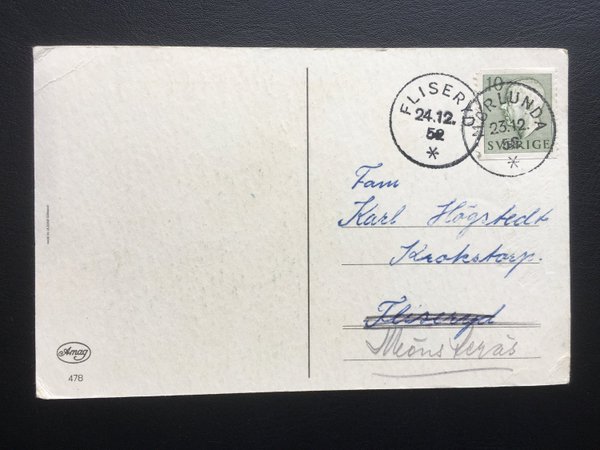 10
SVERIGE
FLISERYD
24.12.
52
*
MÖRLUNDA
23.12.
52
*
Fam
Karl Högstedt
Krokstorp.
Fliseryd
Amag
478